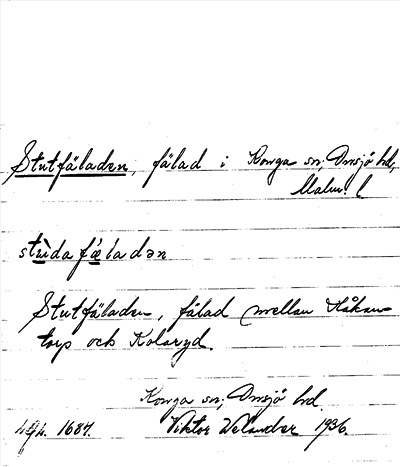 Stutfäladen, fälad i Konga sn, Onsjö hd,
Malm. l
stùdafǽladən
Stutfäladen, fälad mellan Håkan-
torp och Kolaryd.
Konga sn, Onsjö hd.
1684. Viktor Welander 1936.